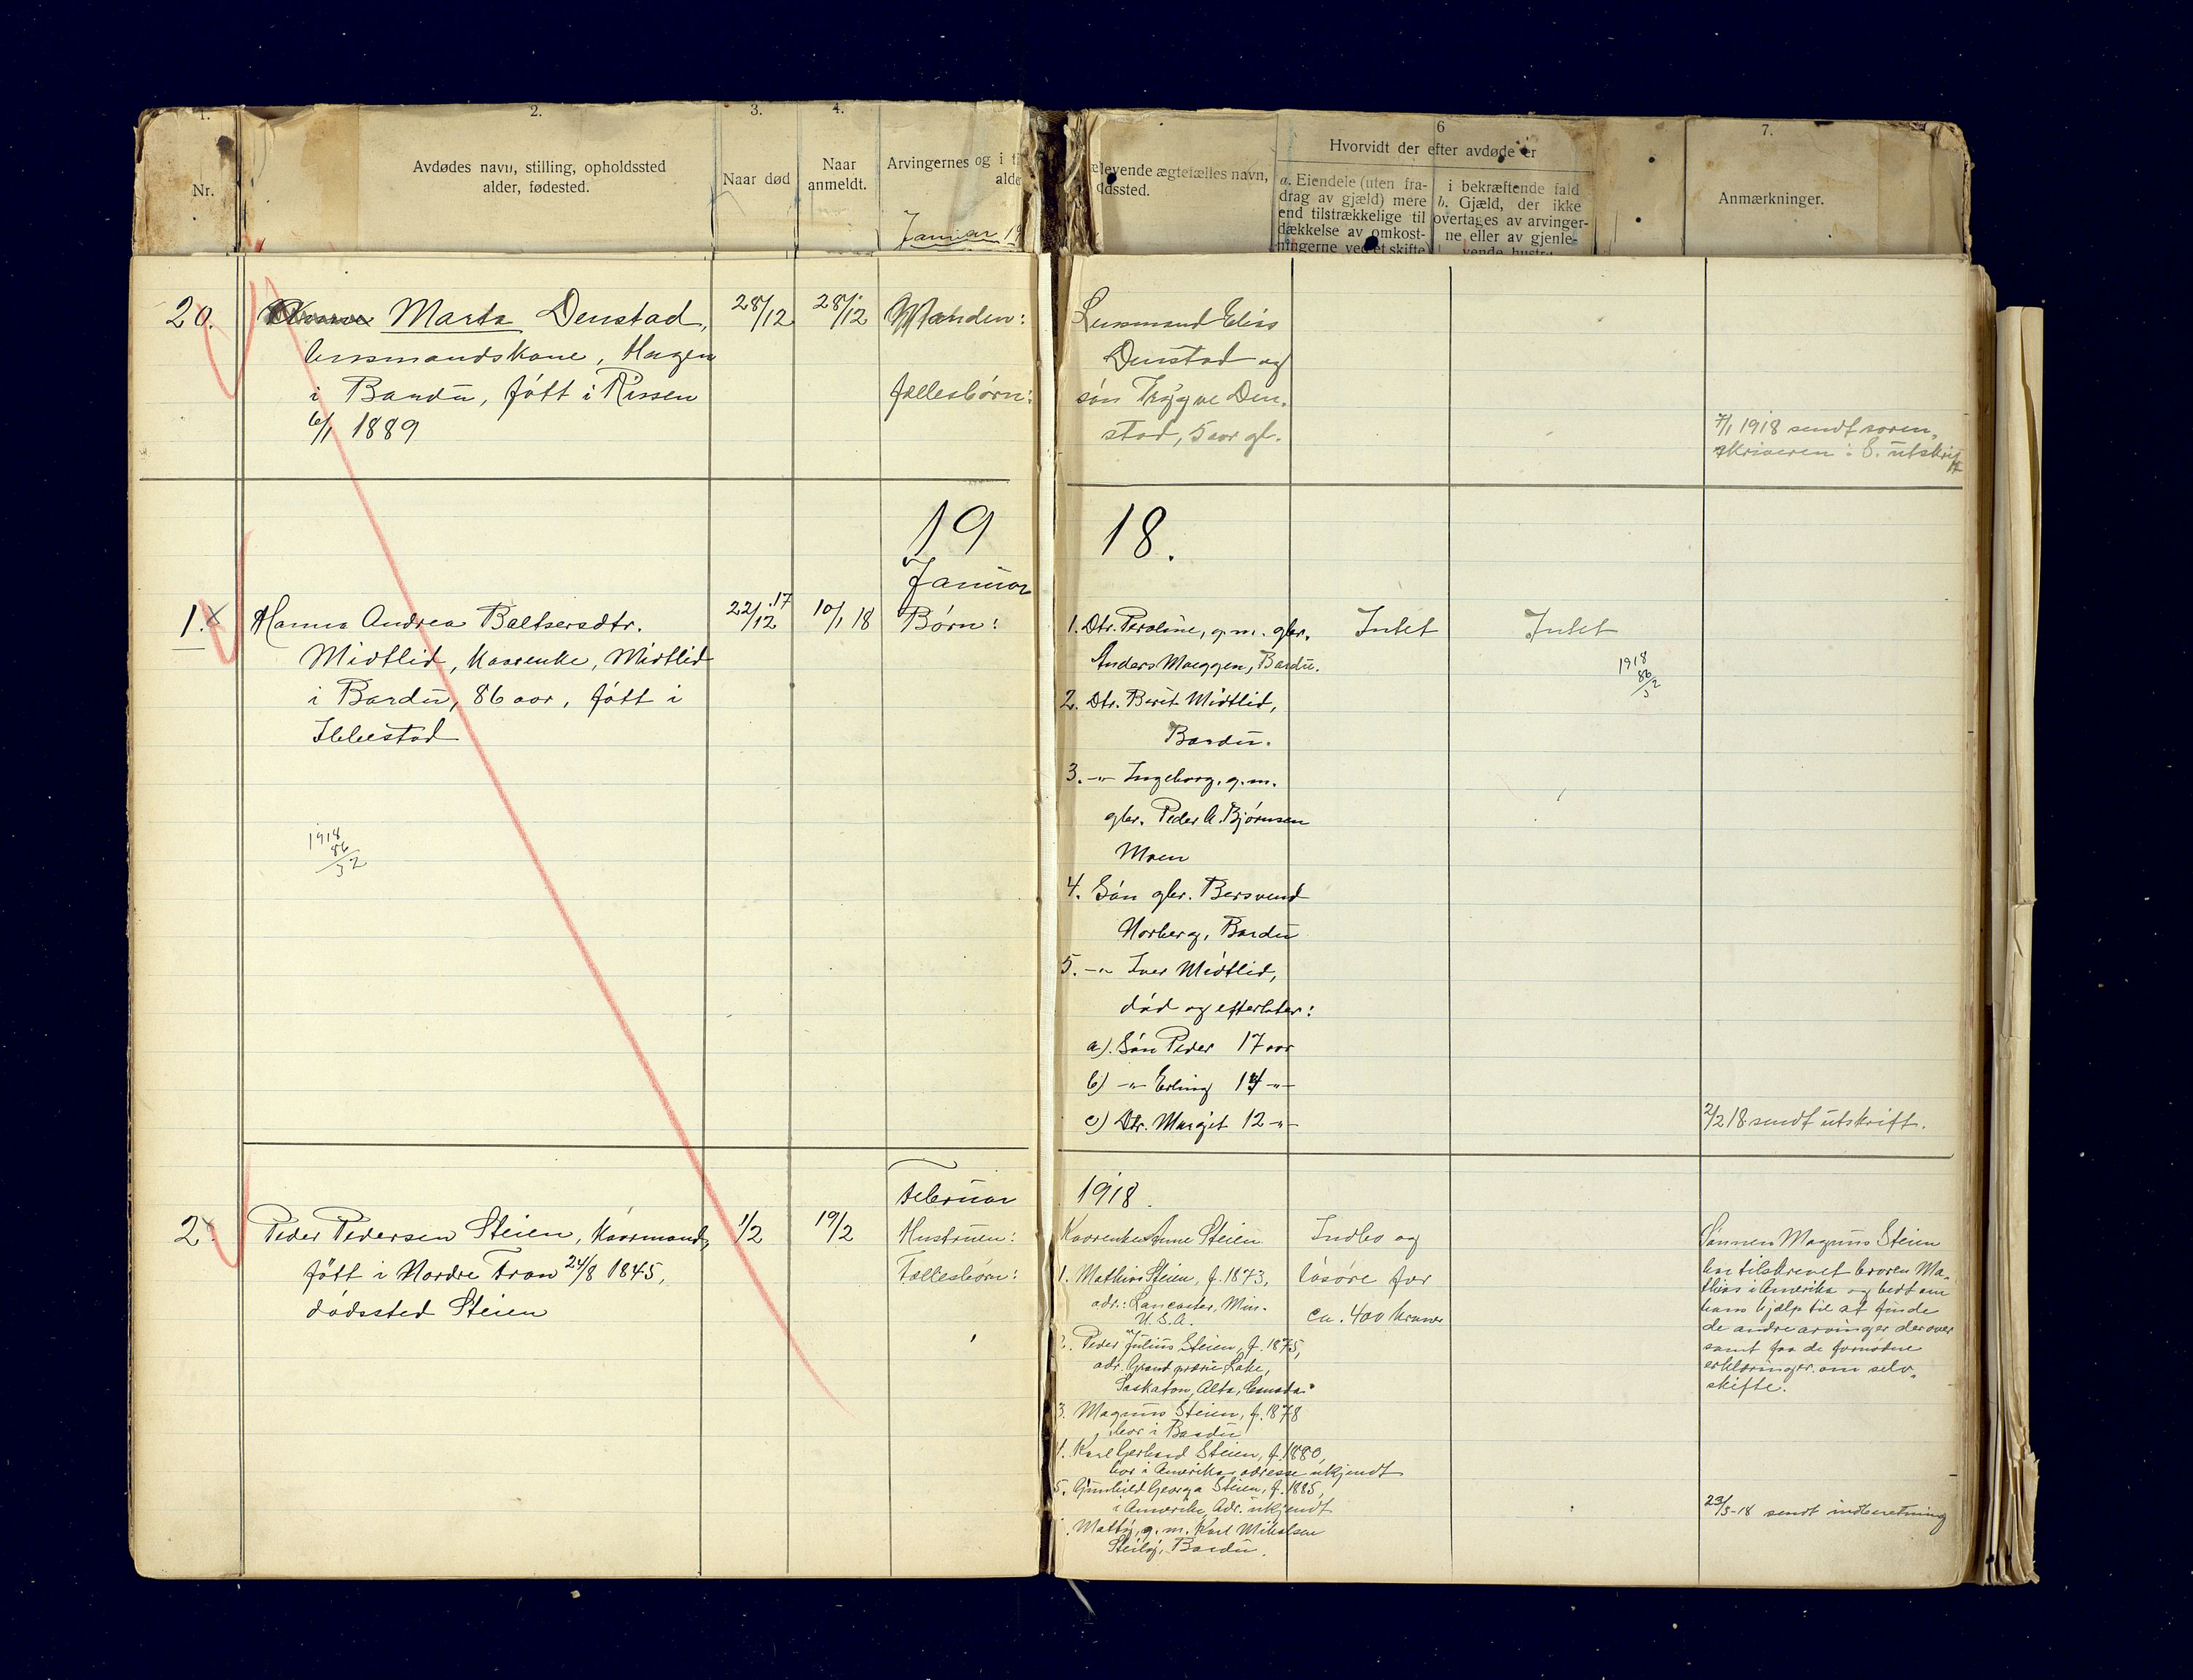 1.
2.
3.
4.
Nr.
Avdødes navn, stilling, opholdssted
alder, fødested.
Naar død
Naar
anmeldt.
Arvingernes og i t
alde
Januar 19
levende ægtefælles navn,
ddssted.
6
Hvorvidt der efter avdøde er
a. Eiendele (uten fra-
drag av gjæld) mere
end tilstrækkelige til
dækkelse av omkost-
ningerne ved et skifte
i bekræftende fald
b. Gjæld, der ikke
overtages av arvinger-
ne eller av gjenle-
vende hustru
7.
Anmærkninger.
20.
Marta Denstad,
lensmandskone, Hagen
i Bardu, født i Rissen
6/1 1889
28/12
28/12
Manden:
fællesbørn:
Lensmand Elias
Denstad og
søn Trygve Den-
stad, 5 aar gl.
7/1 1918 sendt soren-
skriveren: S. utskrift
19
18.
Januar
1.
Hanna Andrea Baltsersdtr.
Midtlid, kaarenke, Midtlid
i Bardu, 86 aar, født i
Ibbestad
22/12 17
10/1 18
Børn:
1918
86
32
1. Dtr. Peroline, g. m. gbr.
Anders Moeggen, Bardu.
2. Dtr. Berit Midtlid,
Bardu.
3. -"- Ingeborg, g. m.
gbr. Peder A. Bjørnsen
Moen
4. Søn gbr. Bersvend
Norberg, Bardu
5. -"- Iver Midtlid,
død og efterlater:
a). Søn Peder 17 aar
b) -"- Erling 14 -"-
c) Dtr. Margit 12 -"-
Intet
Intet
1918
86
32
2/2 18 sendt utskrift.
Februar
1918.
2.
Peder Pedersen Steien, kaarmand,
født i Nordre Fron 24/8 1845,
dødssted Steien
1/2
19/2
Hustruen:
Fællesbørn:
Kaarenke Anne Steien
1. Mathias Steien, f. 1873,
adr.: Lancaster, Min.
U. S. A.
2. Peder Julius Steien, f. 1875,
adr. Grand prærie Lake,
Saskaton, Alta, Canada.
3. Magnus Steien, f. 1878
bor i Bardu
4. Karl Gerhard Steien, f. 1880,
bor i Amerika, adresse ukjendt
5. Gunhild Georga Steien, f. 1885,
i Amerika Adr. ukjendt
g. m. Karl Mikalsen
Bardu.
Indbo og
løsøre for
ca. 400 kroner
Sønnen Magnus Steien
har tilskrevet broren Ma-
thias i Amerika og bedt om
hans hjælp til at finde
de andre arvinger derover
samt faa de fornødne
erklæringer om selv-
skifte.
23/3-18 sendt indberetning